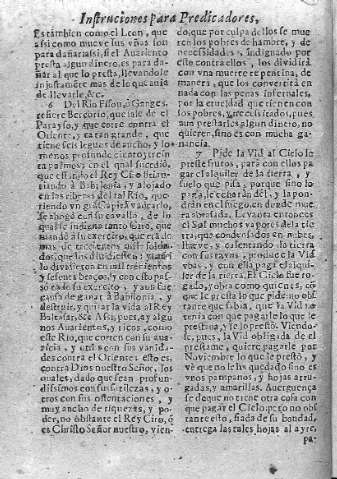 Instruciones para Predicadores,
Es tambien como el Leon, que
assi como mueve las vñas son
para dañar assi, si el Auariento
presta algun dinero, es para da-
ñar al que lo presta, llevandole
injustamẽte mas de lo que auia
de llevarle, &c.
6 Del Rio Fison, ô Ganges,
refiere Bercorio, que sale de el
Parayso, y que corre contra el
Oriente, y es tan grande, que
tiene seis leguas de ancho, y lo
menos profundo
palmos; en el qual sucediò,
que estando el Rey Ciro
à Babilonia, y alojado
en las riberas del tal Rio, que-
riendo vn
se ahogò con su cavallo, de lo
qual se indignò tanto Ciro, que
mandò à su exercito, que era de
mas de
dos, que los diuidiessen; y assi
lo divieron en mil trecientos
y sesenta braços, y con esto pas-
sò todo su exercito, y aun fue
causa de ganar à Babilonia, y
destruir, y quitar la vida al Rey
Baltasar, &c. Assi, pues, ay algu-
nos Auarientos, y ricos, como
este Rio, que corren con su aua-
ricia, y otros con sus vanida-
des contra el Oriente: esto es,
contra Dios nuestro Señor, los
quales, dado que sean profun-
dissimos con sus riquezas, y o-
tros con sus ostentaciones, y
muy ancho de riquezas, y po-
der, no obstante el Rey Ciro, q̃
es Christo Señor nuestro, vien-
do, que por culpa dellos se mue-
ren los pobres de hambre, y de
necessidades, indignado por
esto contra ellos, los dividirà
con vna muerte repentina, de
manera, que los convertirà en
nada con las penas infernales,
por la crueldad que tienen con
los pobres,
para prestarles algun dinero, no
quieren, sino es con mucha ga-
nancia.
7 Pide la Vid al Cielo le
preste frutos, para con ellos pa-
gar el alquiler de la tierra, y
suelo que pisa, porque sino lo
paga, le cortaràn del, y la pon-
dràn en el fuego, en donde mue-
ra abrasada. Levanta entonces
el Sol muchos vapores de la tie-
rra, que condensados en nubes,
llueve, y calentando la tierra
con sus rayos, produce la Vid
vbas, y con ella paga el alqui-
ler de la tierra. El Cielo fue ro-
gado, y obra como quien es, cõ
que le presta lo que pide, no obs-
tante que sabia, que la Vid no te-
nia con que pagarle lo que le
prestava, y se lo prestò. Viendo-
se, pues, la Vid obligada de el
prestamo, quiere pagarle por
Noviembre lo que le prestò, y
vè que no le ha quedado sino es
vnos pampanos, y hojas arru-
gadas, y amarillas. Auerguença
se de que no tiene otra cosa con
que pagar el Cielo, pero no obs-
tante, fiada de su bondad,
entrega las tales hojas al ayre,
pa-